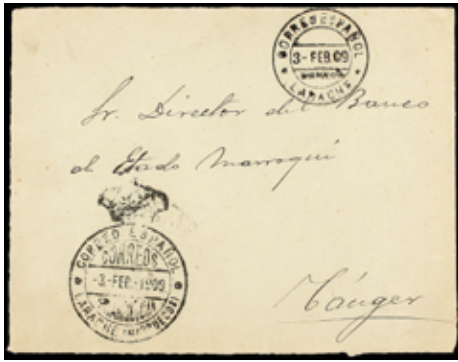 CORREO ESPAÑOL
3-FEB.09
LARACHE
Sr. Director del Banco
de Estado Marroquí
CORREO ESPAÑOL
CORREOS
-3-FEB.-1909
LARACHE (MARRUECOS)
Tánger